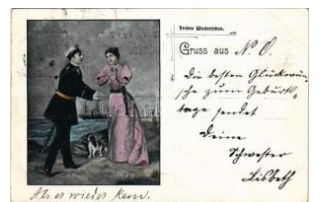 Frohes Wiedersehen.
Gruss aus N. O.
Die besten Glückwün-
sche zum Geburts-
tage sendet
Deine
Schwester
Lisbeth
Als er wieder kam.